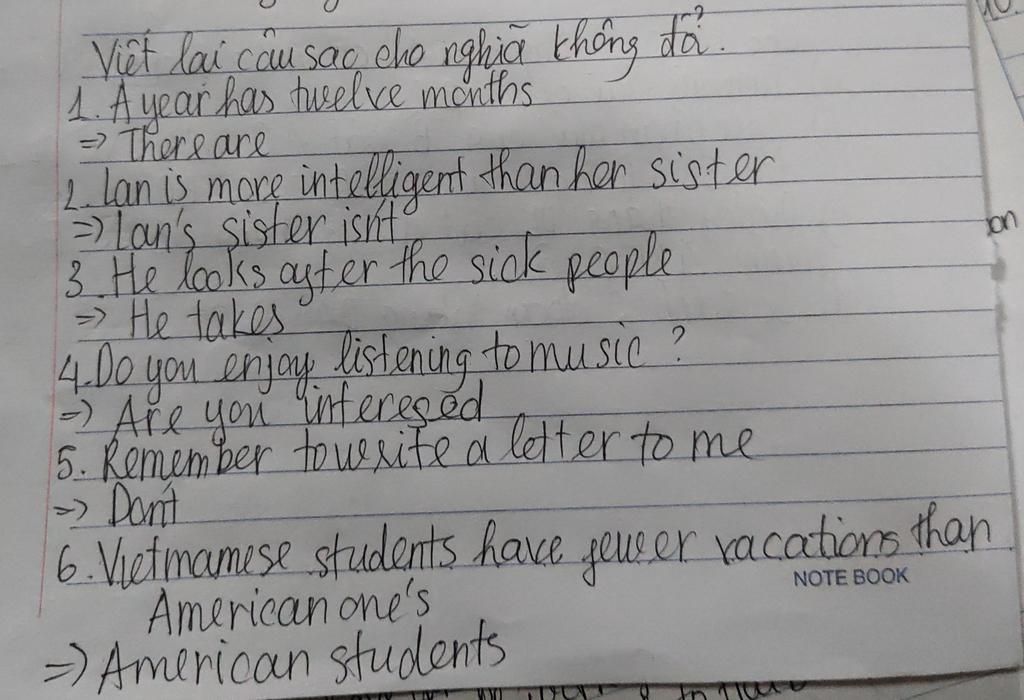 Viết lai câu sao cho nghĩa không đổ.
1. A year has twelve months
=> There are
2. Lan is more intelligent than her sister
=> Lan's sister isn't
3. He looks after the sick people
=> He takes
4. Do you enjoy listening to music ?
=> Are you interesed
5. Remember to write a letter to me
=> Don't
6. Vietmamese students have fewer vacations than
NOTE BOOK
American one's
=> American students
on